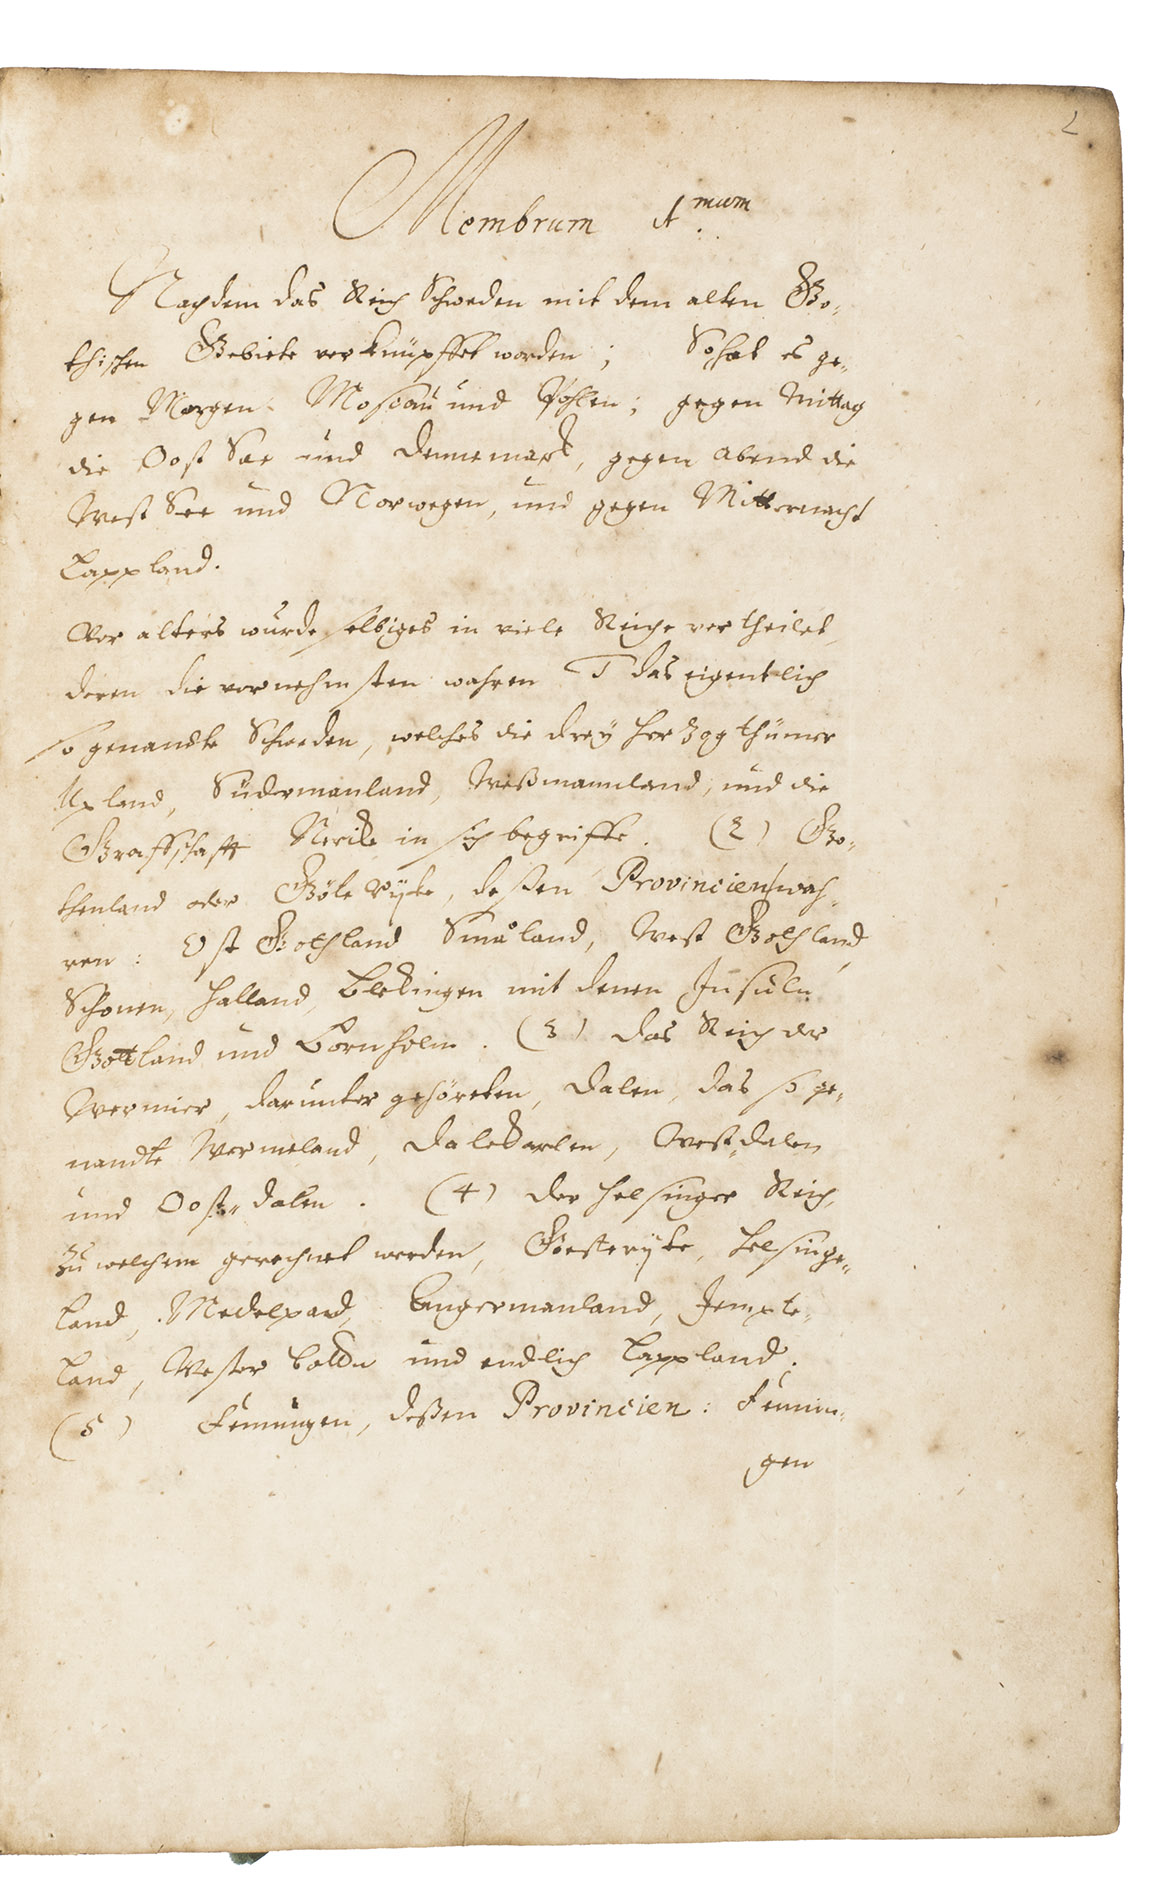 2
Membrum 1mum
Nachdem das Reich Schweden mit dem alten Go-
thischen Gebiete verknüpffet worden; So hat es ge-
gen Morgen Moscau und Pohlen; gegen Mittag
die Oost See und Dennemark, gegen Abend die
West See und Norwegen, und gegen Mitternacht
Lappland.
Vor alters wurde selbiges in viele Reiche vertheilet
deren die vornehmsten wahren das eigentlich
so genandte Schweden, welches die drey Herzogthümer
Upland, Südermanland, Weßmannland, und die
Graffschafft Nerike in sich begriffe. (2) Go-
thenland oder Göte Ryke, deßen Provincien wah-
ren: Ost Gothland Småland, West Gothland,
Schonen, Halland, Blekingen mit denen Insuln
Gottland und Bornholm. (3) das Reich der
Wermier, darunter gehöreten, Dalen, das so ge-
nandte Wermeland, Dalekarlen, Westdalen
und Ooster dalen. (4) der Helsinger Reich,
zu welchem gerechnet werden, Gesteryke, Helsinge-
land, Medelpad, Angermanland, Jempte-
land, Wester Botten und endlich Lappland.
(5) Fenningen, deßen Provincien: Fennin-
gen